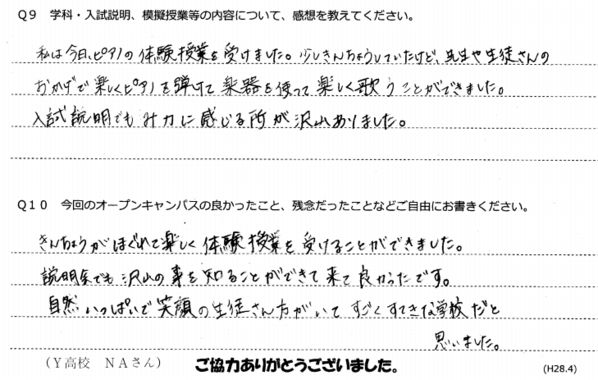 Q9 学科・入試説明、模擬授業等の内容について、感想を教えてください。
私は今日、ピアノの体験授業を受けました。少しきんちょうしていたけど、先生や生徒さんの
おかげで楽しくピアノを弾けて楽器を使って楽しく歌うことができました。
入試説明でもみ力に感じる所が沢山ありました。
Q10 今回のオープンキャンパスの良かったこと、残念だったことなどご自由にお書きください。
きんちょうがほぐれて楽しく体験授業を受けることができました。
説明会でも沢山の事を知ることができて来て良かったです。
自然いっぱいで笑顔の生徒さん方がいてすごくすてきな学校だと
思いました。
(Y高校 NAさん)
ご協力ありがとうございました。
(H28.4)